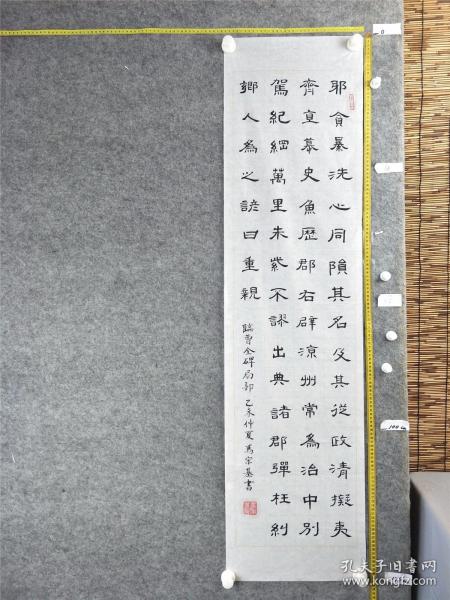 耶貪暴洗心同隕其名及其從政清擬夷
齊直慕史魚歷郡右辟涼州常為治中別
駕紀綱萬里朱紫不謬出典諸郡彈枉糾
鄉人為之諺曰重親
臨曹全碑局部 乙未仲夏馬宗基書
孔夫子旧书网
kongfz.com